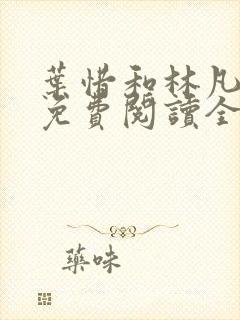 葉惜和林凡
免費閱讀全
藥味